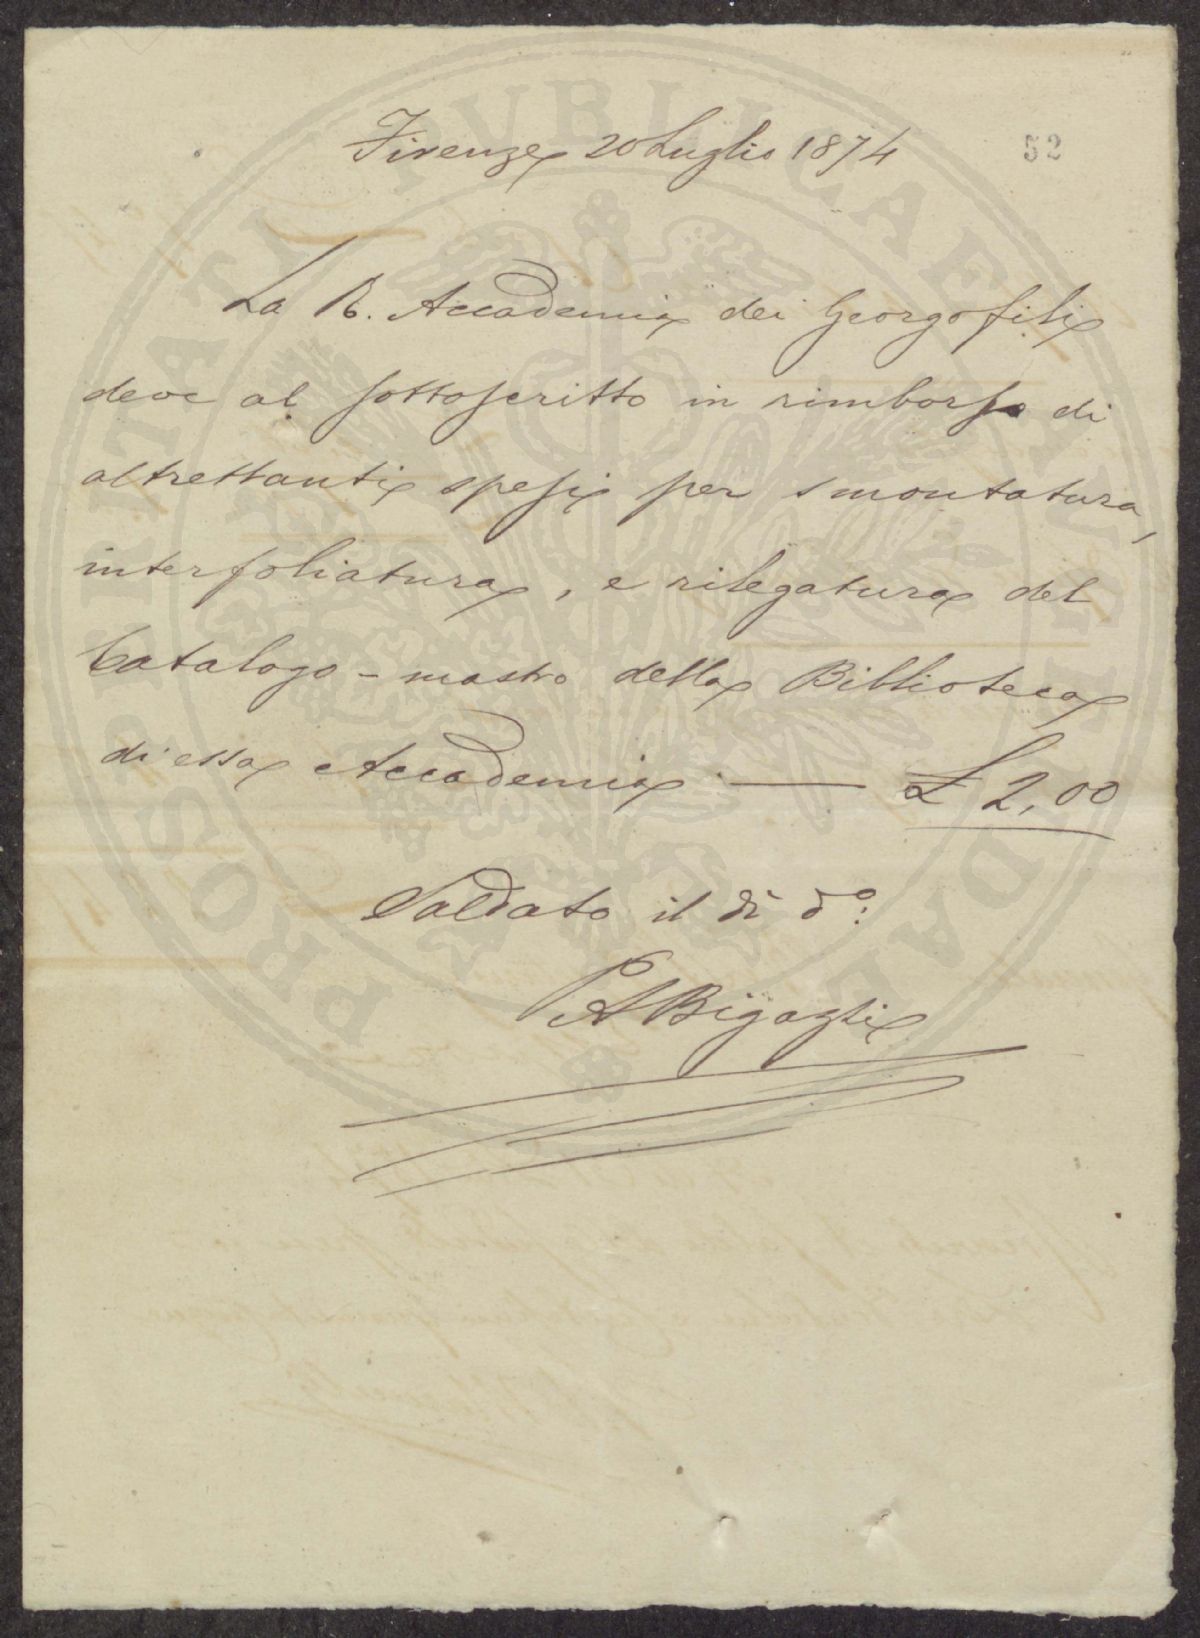 Firenze 20 Luglio 1874
52
La R. Accademia dei Georgofili
deve al sottoscritto in rimborso di
altrettanti spesi per smontatura,
interfoliatura, e rilegatura del
Catalogo-mastro della Biblioteca
di essa Accademia — £ 2,00
Saldato il dì d.º:
A Bigazzi
PROSPERITATI PVBLICAE AVGENDAE